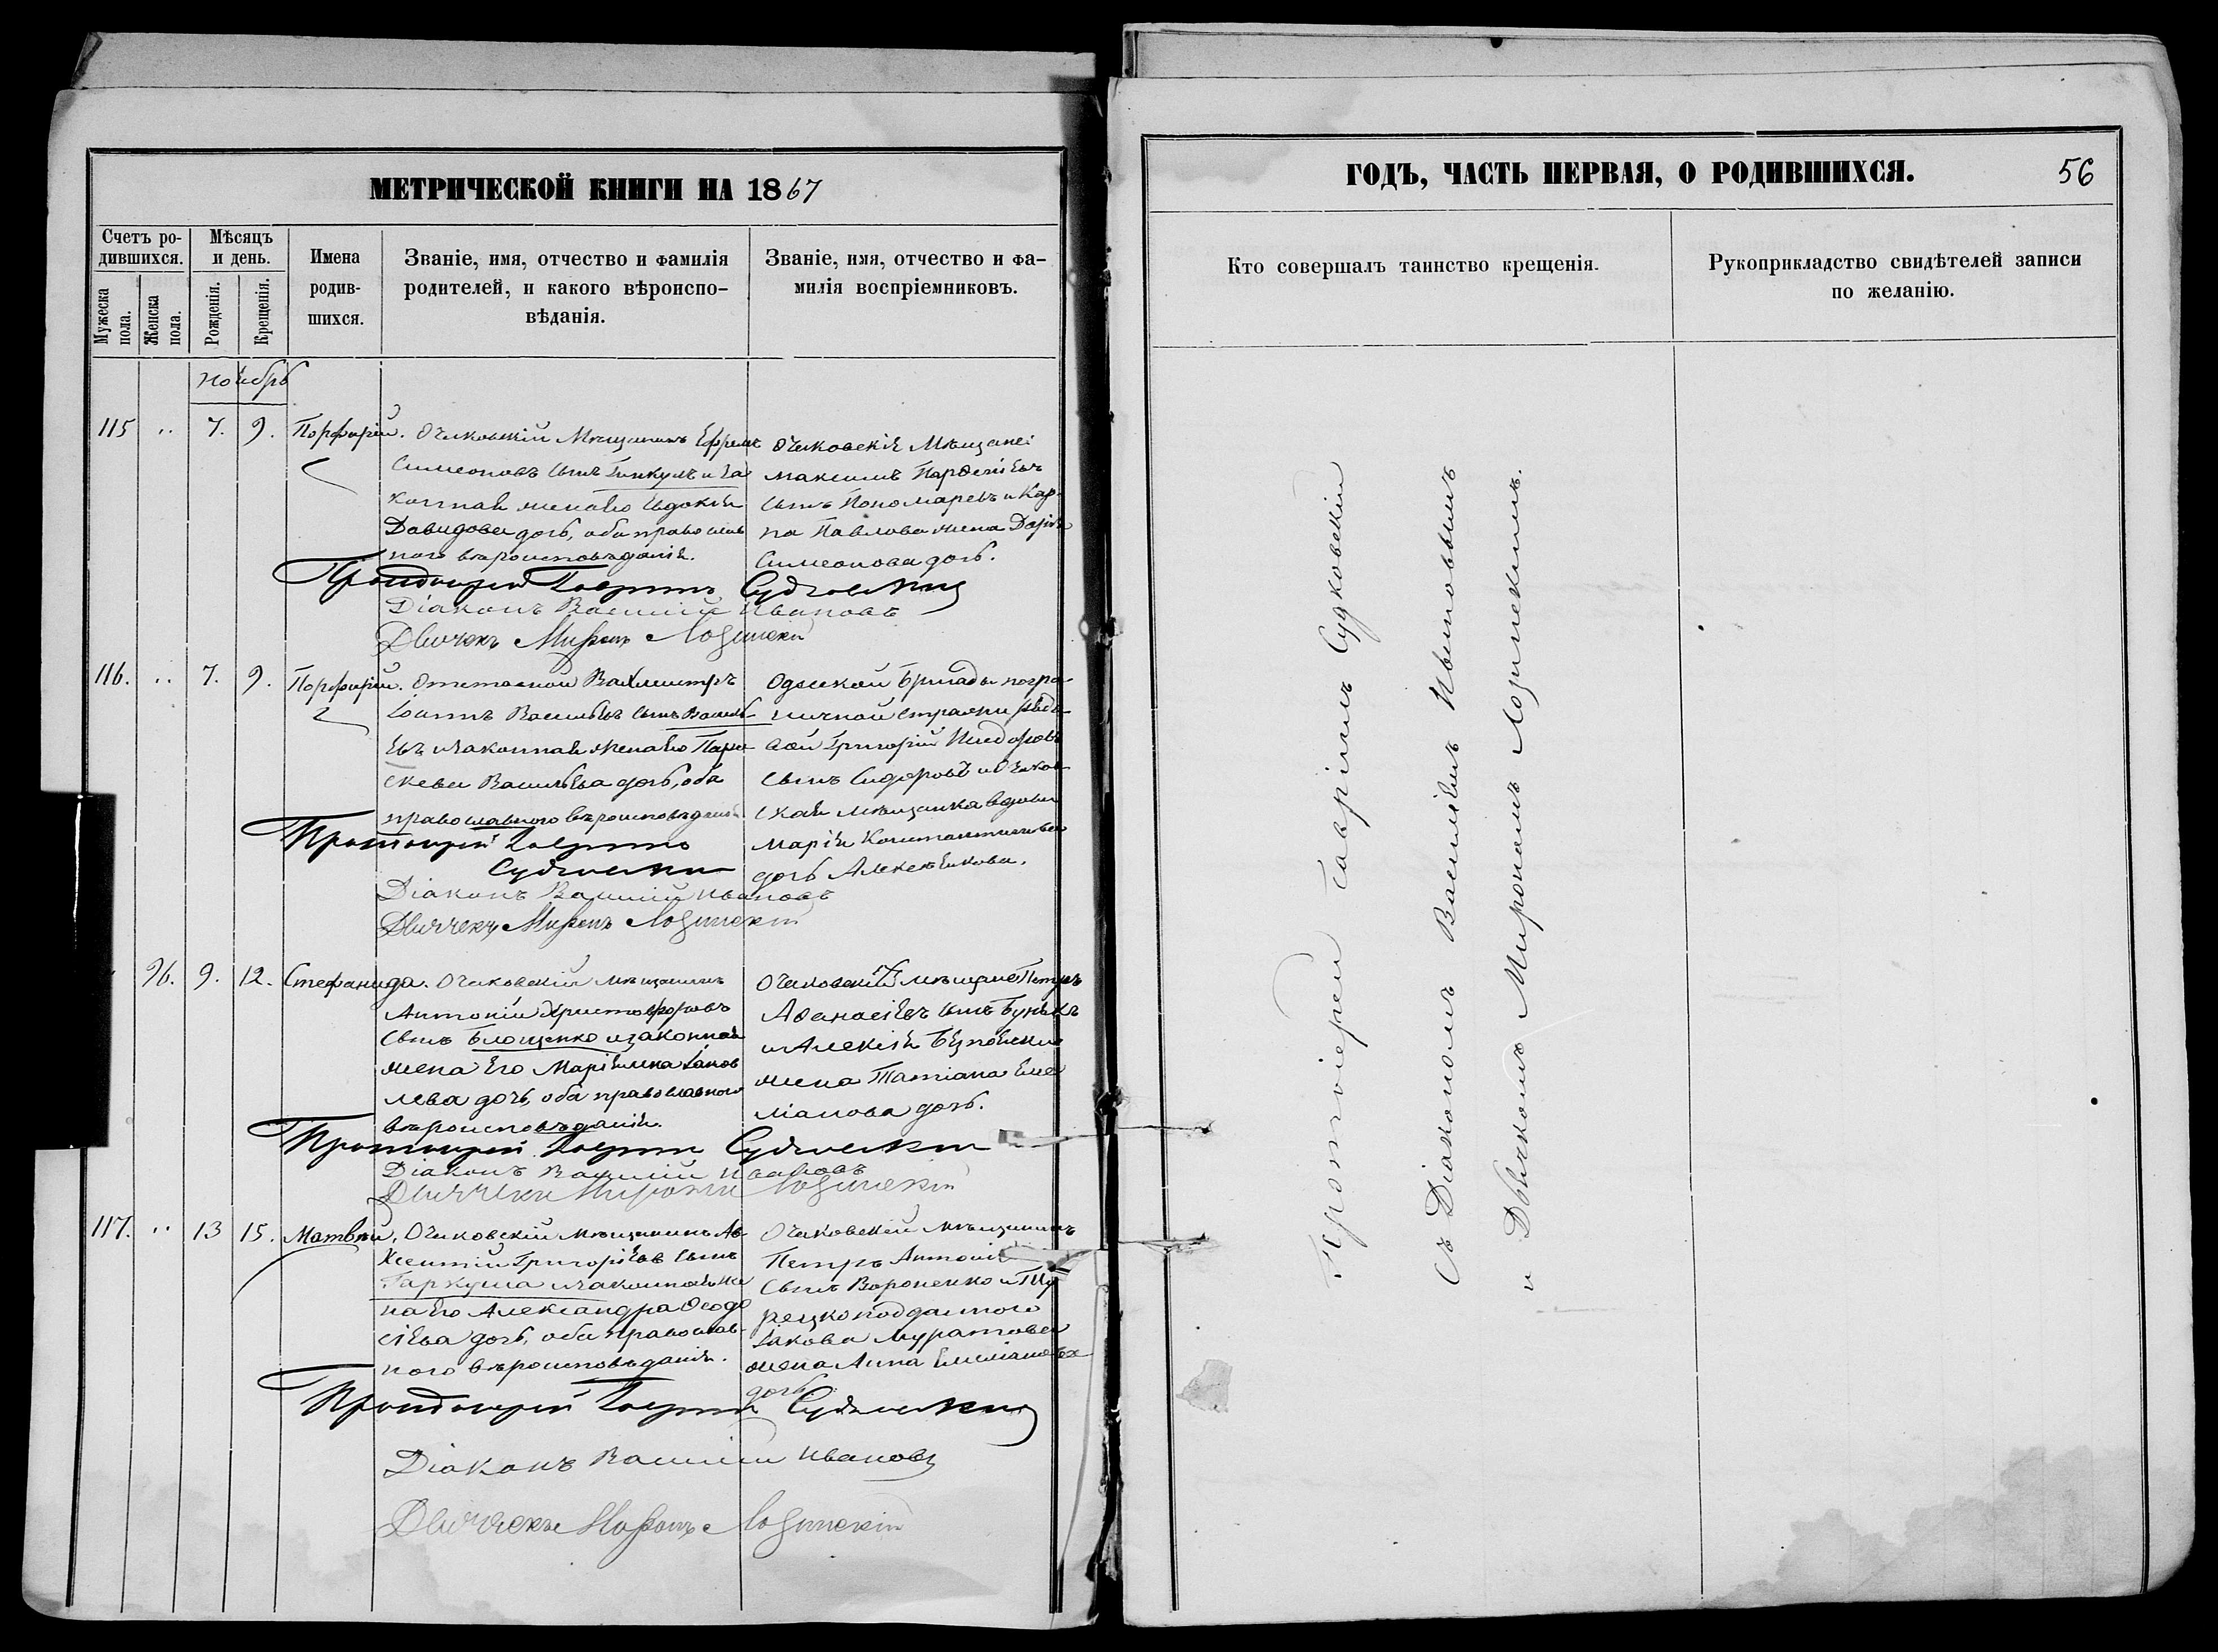 МЕТРИЧЕСКОЙ КНИГИ НА 1867
Счетъ ро-
дившихся.
Мужеска
пола.
Женска
пола.
Мѣсяцъ
и день.
Рожденія.
Крещенія.
Имена
родив-
шихся.
Званіе, имя, отчество и фамилія
родителей, и какого вѣроиспо-
вѣданія.
Званіе, имя, отчество и фа-
милія воспріемниковъ.
Ноябрь
115 " 7. 9. Порфирій.
Очаковскій Мѣщанинъ Ефремъ
Симеоновъ сынъ и за
конная жена его Евдокія
Давидова дочь, оба православ
наго вѣроисповѣданія.
Очаковскіе Мѣщане:
Максимъ Парѳеніевъ
сынъ Пономаревъ и Кар-
па Павлова жена Дарія
Симеонова дочь.
Протоіерей Гавріилъ Судковскій
Діаконъ Василій Ивановъ
Дьячекъ Миронъ Лозинскій
116. " 7. 9. Порфирій.
Отставной Вахмистръ
Іоаннъ Васильевъ сынъ Василь-
евъ и законная жена его Пара-
скева Васильева дочь, оба
православнаго вѣроисповѣданія
Одесской бригады погра-
ничной стражи
Григорій Исидоровъ
сынъ Сидоровъ и Очаков
ская мѣщанка вдова
Марія Константинова
дочь Алексѣенкова.
Протоіерей Гавріилъ
Судковскій
Діаконъ Василій Ивановъ
Дьячекъ Миронъ Лозинскій
96. 9. 12. Стефанида.
Очаковскій мѣщанинъ
Антоній Христофоровъ
сынъ Блощенко и законная
жена его Маріамна Іаков
лева дочь, оба православнаго
вѣроисповѣданія.
Очаковскій мѣщане Петръ
Аѳанасіевъ сынъ
и Алексія
жена Татіана Еме
ліанова дочь.
Протоіерей Гавріилъ Судковскій
Діаконъ Василій Ивановъ
Дьячекъ Миронъ Лозинскій
117. " 13 15. Матвѣй.
Очаковскій мѣщанинъ Ав-
ксентій Григоріевъ сынъ
Гаркуша и законная же
на его Александра Ѳеодо
сіева дочь, оба православ-
наго вѣроисповѣданія.
Очаковскій мѣщанинъ
Петръ Антоніе
сынъ Вороненко и Ту
рецкоподданнаго
Іакова Муратова
жена Анна Емеліанова
дочь.
Протоіерей Гавріилъ Судковскій
Діаконъ Василій Ивановъ
Дьячекъ Миронъ Лозинскій
ГОДЪ, ЧАСТЬ ПЕРВАЯ, О РОДИВШИХСЯ.
56
Кто совершалъ таинство крещенія.
Рукоприкладство свидѣтелей записи
по желанію.
Протоіерей Гавріилъ Судковскій
съ Діакономъ Василіемъ Ивановымъ
и Дьячкомъ Мирономъ Лозинскимъ.